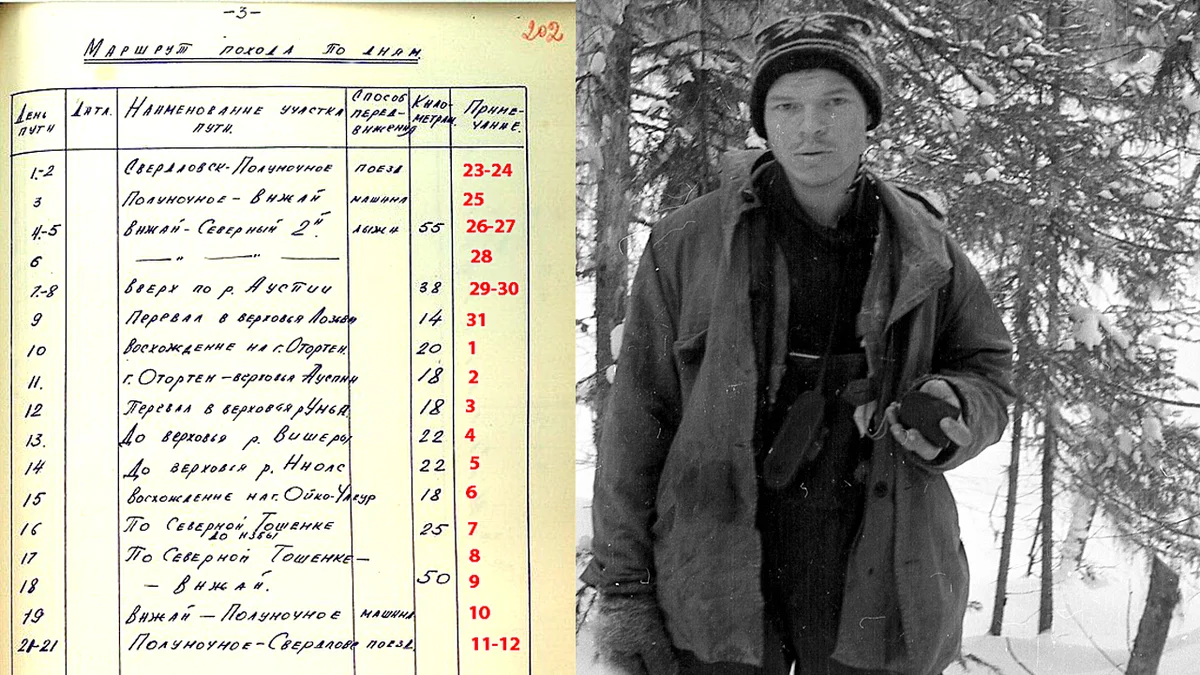 -3-
202
Маршрут похода по дням.
День пути Дата. Наименование участка пути. Способ передвижения Километраж. Примечание.
1-2 Свердловск-Полуночное поезд 23-24
3 Полуночное-Вижай машина 25
4-5 Вижай-Северный 2й. лыжи 55 26-27
6 —"— —"— 28
7-8 вверх по р. Ауспии 38 29-30
9 Перевал в верховья Лозьвы 14 31
10 Восхождение на г. Отортен. 20 1
11. г. Отортен-верховья Ауспии 18 2
12 Перевал в верховья р Унья 18 3
13. До верховья р. Вишеры 22 4
14 До верховья р. Ниолс 22 5
15 Восхождение на г. Ойко-Чакур 18 6
16 По Северной Тошемке до избы 25 7
17 По Северной Тошемке- 8
18 - Вижай. 50 9
19 Вижай-Полуночное машина 10
21-21 Полуночное-Свердловс поезд 11-12